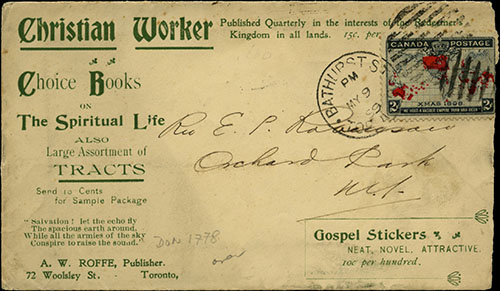 Christian Worker
Published Quarterly in the interests of the Redeemer's
Kingdom in all lands. 15c. per
Choice Books
ON
The Spiritual Life
ALSO
Large Assortment of
TRACTS
Send 10 Cents
for Sample Package
"Salvation! let the echo fly
The spacious earth around,
While all the armies of the sky
Conspire to raise the sound."
A. W. ROFFE, Publisher.
72 Woolsley St. - Toronto,
CANADA POSTAGE
XMAS 1898
2
2
BATHURST ST
PM
MY 9
99
Rev E. P.
Orchard Park
N.Y.
DON 1778
Gospel Stickers
NEAT, NOVEL, ATTRACTIVE.
10c per hundred.